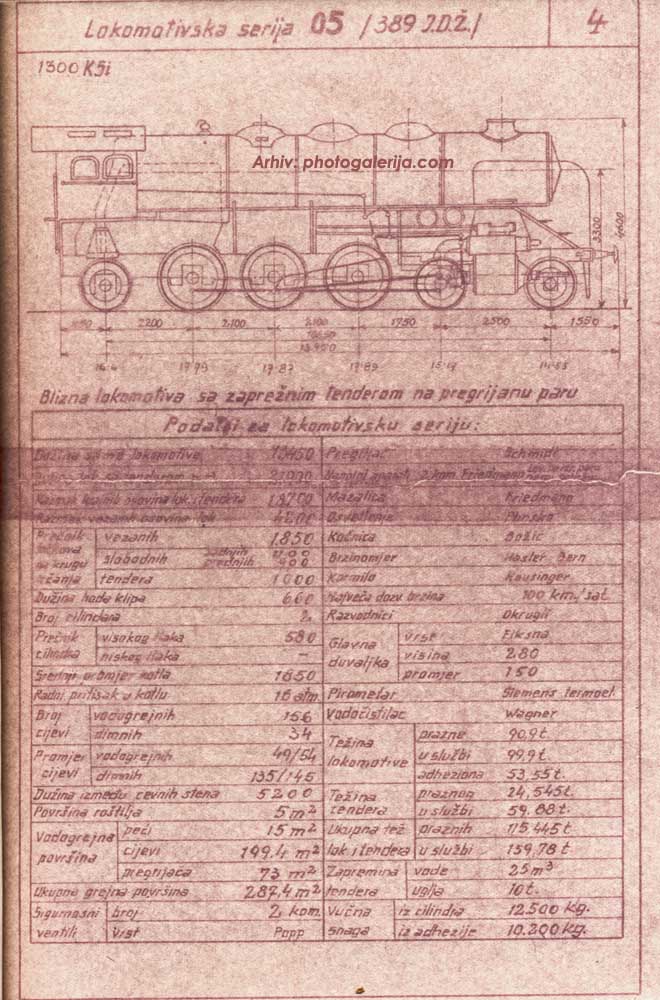 Lokomotivska serija 05 /389 J.D.Ž./
4
1300 KSi
Arhiv: photogalerija.com
3300
4600
2200
2100
2100
1750
2500
1550
17.79
17.87
17.89
Blizna lokomotiva sa zaprežnim tenderom na pregrijanu paru
Podatci za lokomotivsku seriju:
Dužina same lokomotive
Pregrijač Schmidt
Mazalica Friedmann
Osvetlenje Plinsko
Prečnik točkova na krugu trčanja
vezanih 1850
slobodnih zadnjih prednjih
tendera 1000
Kočnica Božić
Brzinomjer Hasler Bern
Kormilo Heusinger
Dužina hoda klipa 660
Najveća dozv. brzina 100 km./sat
Broj cilindara 2
Razvodnici Okrugli
Prečnik cilindra
visokog tlaka 580
niskog tlaka –
Glavna duvaljka
vrst Fiksna
visina 280
promjer 150
Srednji promjer kotla 1650
Radni pritisak u kotlu 16 atm
Pirometar Siemens termoel.
Broj cijevi
vodogrejnih 156
dimnih 34
Vodočistilac Wagner
Promjer cijevi
vodogrejnih 49/54
dimnih 135/145
Težina lokomotive
prazne 90,9 t.
u službi 99,9 t.
adheziona 53,55 t.
Dužina između cevnih stena 5200
Površina roštilja 5 m²
Težina tendera
praznog 24,545 t.
u službi 59.88 t.
Vodogrejna površina
peći 15 m²
cijevi 199.4 m²
pregrijača 73 m²
Ukupna tež. lok. i tendera
praznih 115,445 t.
u službi 159,78 t
Ukupna grejna površina 287,4 m²
Zapremina tendera
vode 25 m³
uglja 10 t.
Sigurnosni ventili
broj 2 kom.
Vrst Popp
Vučna snaga
iz cilindra 12.500 kg.
iz adhezije 10.200 kg.